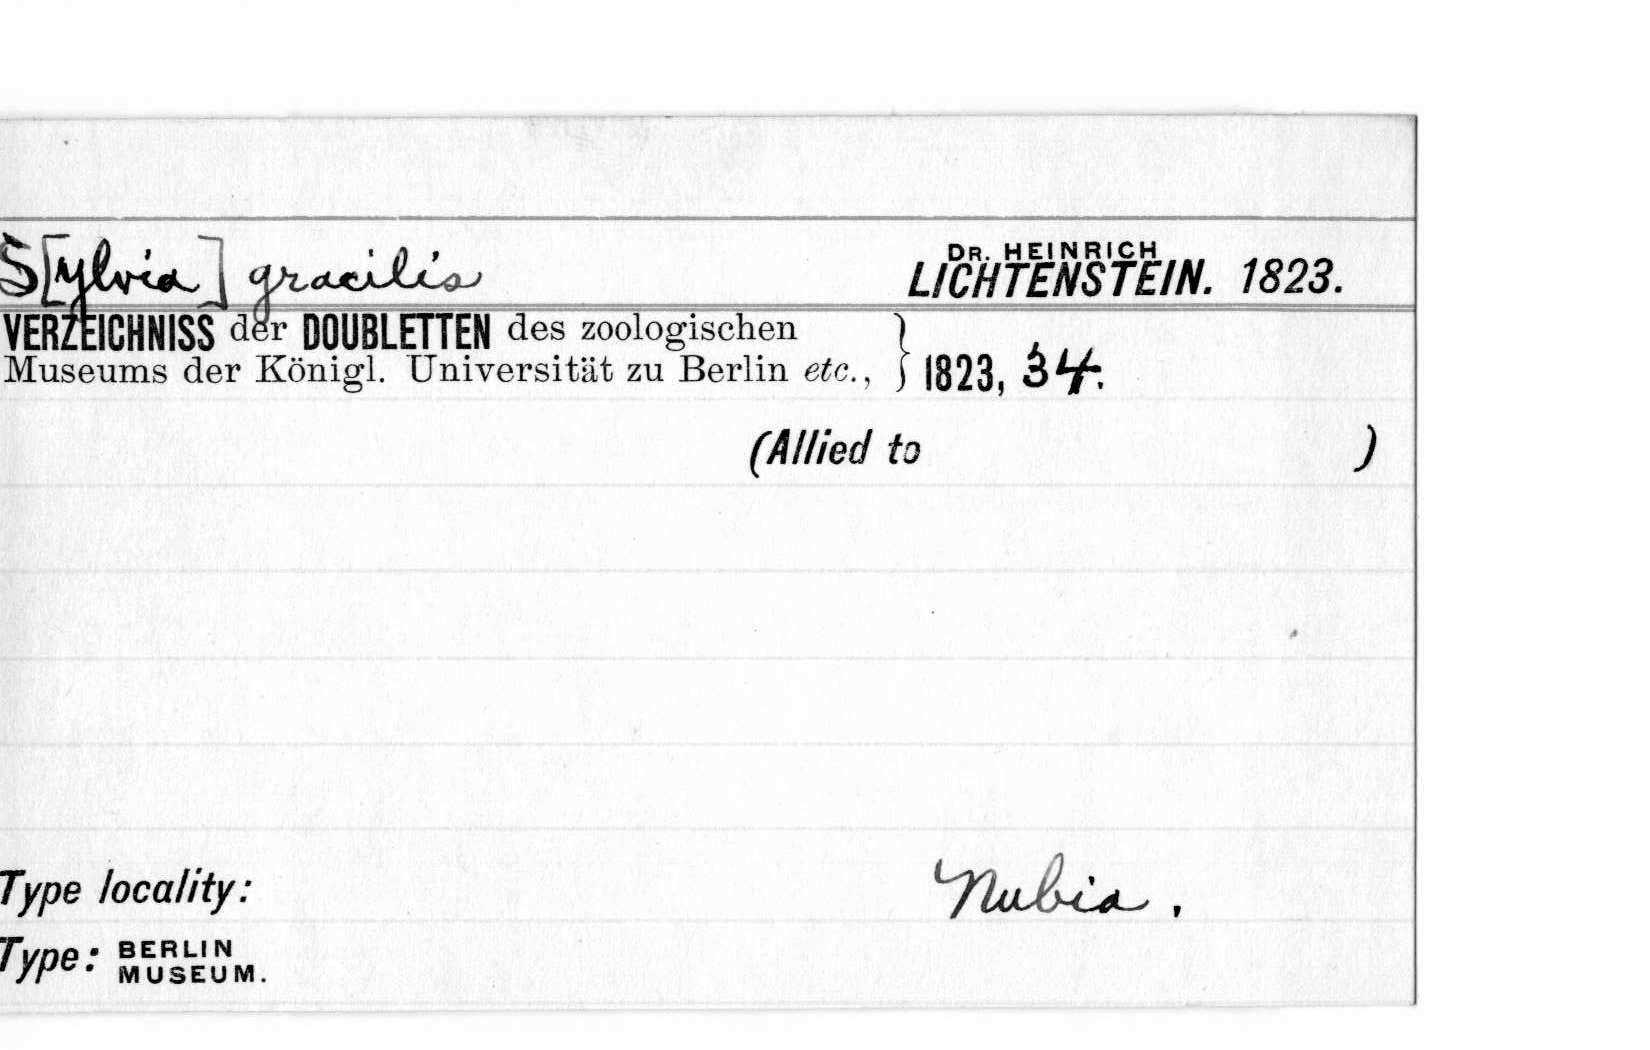 S[ylvia] gracilis
DR. HEINRICH
LICHTENSTEIN. 1823.
VERZEICHNISS der DOUBLETTEN des zoologischen
Museums der Königl. Universität zu Berlin etc., } 1823, 34.
(Allied to )
Type locality: Nubia.
Type: BERLIN
MUSEUM.